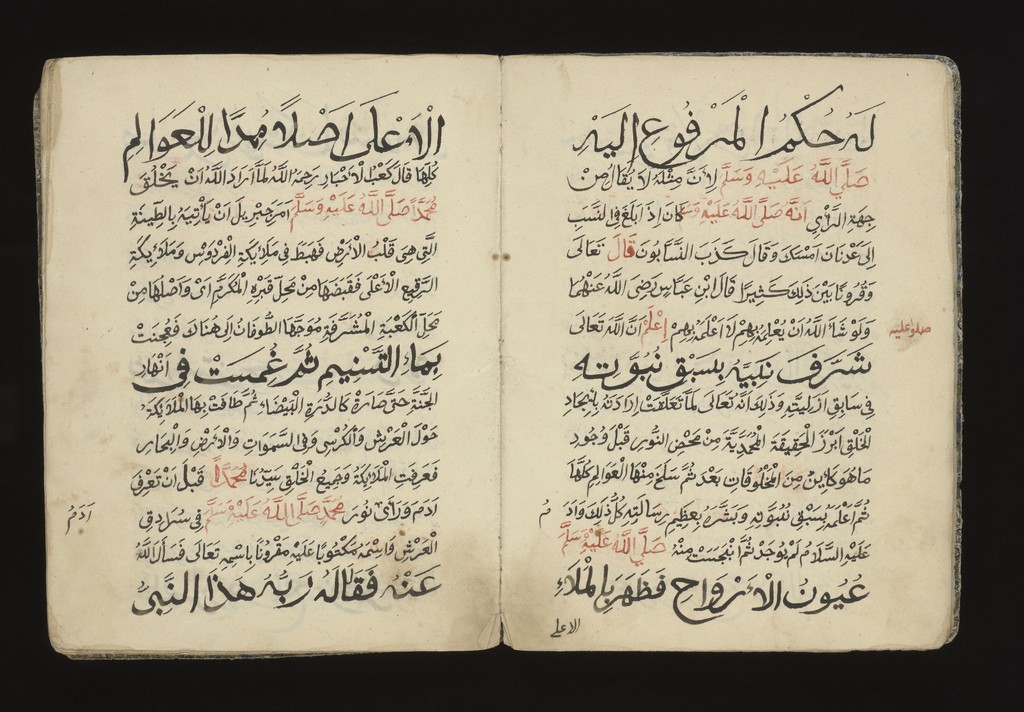 لَهُ حُكْمُ الْمَرْفُوعِ اِلَيْهِ
صَلَّى اللَّهُ عَلَيْهِ وَسَلَّمَ لِاَنَّ مِثْلَهُ لَا يُقَالُ مِنْ
جِهَةِ الرَّأْىِ اَنَّهُ صَلَّى اللَّهُ عَلَيْهِ وَسَلَّمَ كَانَ اِذَا بَلَغَ فِى النَّسَبِ
اِلَى عَدْنَانَ اَمْسَكَ وَقَالَ كَذَبَ النَّسَّابُونَ قَالَ تَعَالَى
وَقُرُونًا بَيْنَ ذَلِكَ كَثِيرًا قَالَ ابْنُ عَبَّاسٍ رَضِىَ اللَّهُ عَنْهُمَا
وَلَوْ شَاءَ اللَّهُ اَنْ يُعْلِمَهُ بِهِمْ لَاَعْلَمَهُ بِهِمْ اِعْلَمْ اَنَّ اللَّهَ تَعَالَى
صلى الله عليه
شَرَّفَ نَبِيَّهُ بِسَبْقِ نُبُوَّتِهِ
فِى سَابِقِ اَزَلِيَّتِهِ وَذَلِكَ اَنَّهُ تَعَالَى لَمَّا تَعَلَّقَتْ اِرَادَتُهُ بِاِيْجَادِ
الْخَلْقِ اَبْرَزَ الْحَقِيقَةَ الْمُحَمَّدِيَّةَ مِنْ مَحْضِ النُّورِ قَبْلَ وُجُودِ
مَا هُوَ كَائِنٌ مِنَ الْمَخْلُوقَاتِ بَعْدُ ثُمَّ سَلَخَ مِنْهَا الْعَوَالِمَ كُلَّهَا
ثُمَّ اَعْلَمَهُ بِسَبْقِ نُبُوَّتِهِ وَبَشَّرَهُ بِعَظِيمِ رِسَالَتِهِ كُلُّ ذَلِكَ وَادَ
مُ
عَلَيْهِ السَّلَامُ لَمْ يُوجَدْ ثُمَّ انْبَجَسَتْ مِنْهُ صَلَّى اللَّهُ عَلَيْهِ وَسَلَّمَ
عُيُونُ الْاَرْوَاحِ فَظَهَرَ بِالْمَلَاءِ
الاعلى
الْاَعْلَى اَصْلًا مُمِدًّا لِلْعَوَالِمِ
كُلِّهَا قَالَ كَعْبُ الْاَحْبَارِ رَحِمَهُ اللَّهُ لَمَّا اَرَادَ اللَّهُ اَنْ يَخْلُقَ
مُحَمَّدًا صَلَّى اللَّهُ عَلَيْهِ وَسَلَّمَ اَمَرَ جِبْرِيلَ اَنْ يَأْتِيَهُ بِالطِّينَةِ
الَّتِى هِىَ قَلْبُ الْاَرْضِ فَهَبَطَ فِى مَلَائِكَةِ الْفِرْدَوْسِ وَمَلَائِكَةِ
الرَّقِيعِ الْاَعْلَى فَقَبَضَهَا مِنْ مَحَلِّ قَبْرِهِ الْمُكَرَّمِ اَىْ وَاَصْلُهَا مِنْ
مَحَلِّ الْكَعْبَةِ الْمُشَرَّفَةِ مَوَّجَهَا الطُّوفَانُ اِلَى هُنَاكَ فَعُجِنَتْ
بِمَاءِ التَّسْنِيمِ ثُمَّ غُمِسَتْ فِى اَنْهَارِ
الْجَنَّةِ حَتَّى صَارَةْ كَالدُّرَّةِ الْبَيْضَاءِ ثُمَّ طَافَتْ بِهَا الْمَلَائِكَةُ
حَوْلَ الْعَرْشِ وَالْكُرْسِى وَفِى السَّمَوَاتِ وَالْاَرْضِ وَالْبِحَارِ
فَعَرَفَتِ الْمَلَائِكَةُ وَجَمِيعُ الْخَلْقِ سَيِّدَنَا مُحَمَّدًا قَبْلَ اَنْ تَعْرِفَ
اَدَمُ
اَدَمَ وَرَأَى نُورَ مُحَمَّدٍ صَلَّى اللَّهُ عَلَيْهِ وَسَلَّمَ فِى سُرَادِقِ
الْعَرْشِ وَاسْمَهُ مَكْتُوبًا عَلَيْهِ مَقْرُونًا بِاسْمِهِ تَعَالَى فَسَاَلَ اللَّهَ
عَنْهُ فَقَالَ لَهُ رَبُّهُ هَذَا النَّبِىُّ